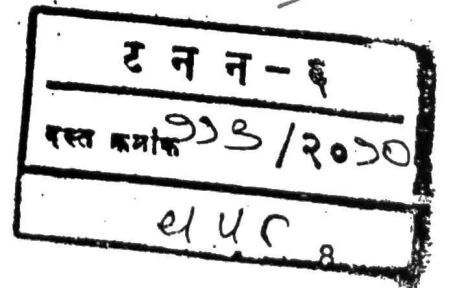 ट न न - ६
दस्त क्रमांक ११३ /२०१०
8